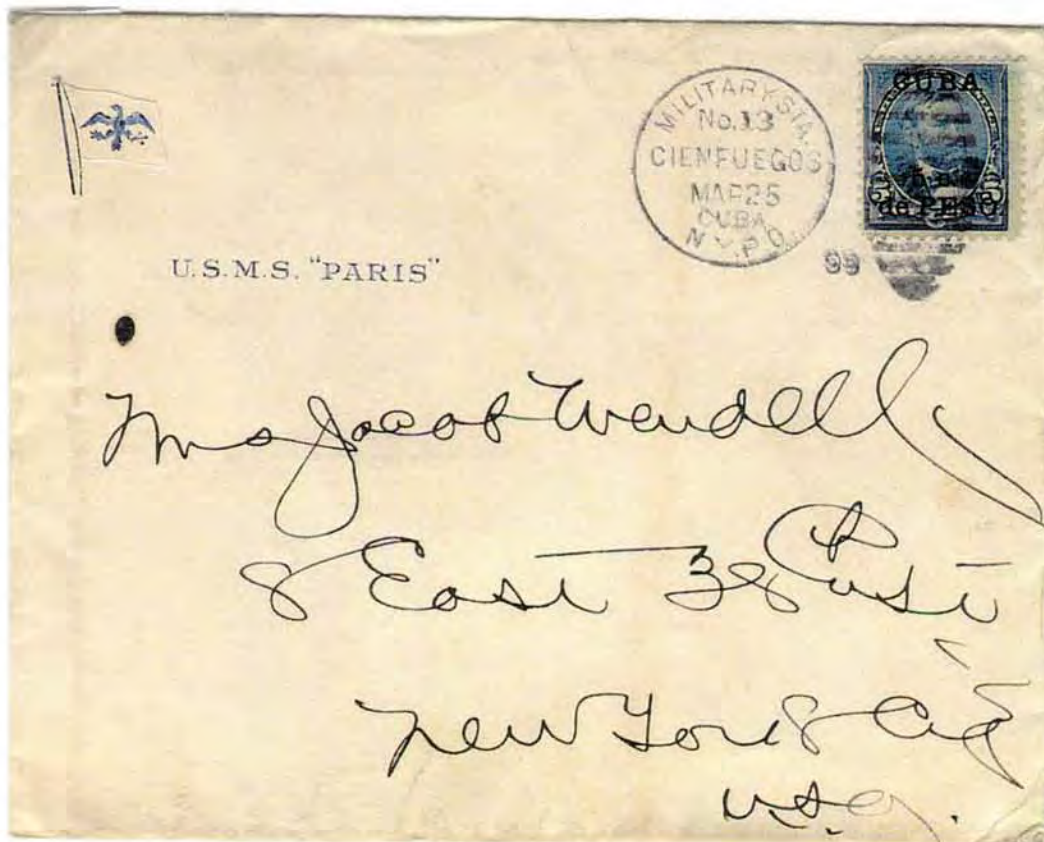 MILITARY STA.
No.13
CIENFUEGOS
MAR 25
CUBA
N.Y.P.O.
99
CUBA
de PESO.
U.S.M.S. "PARIS"
Mrs Jacob Wendell
8 East 38
New York City
U.S.A.